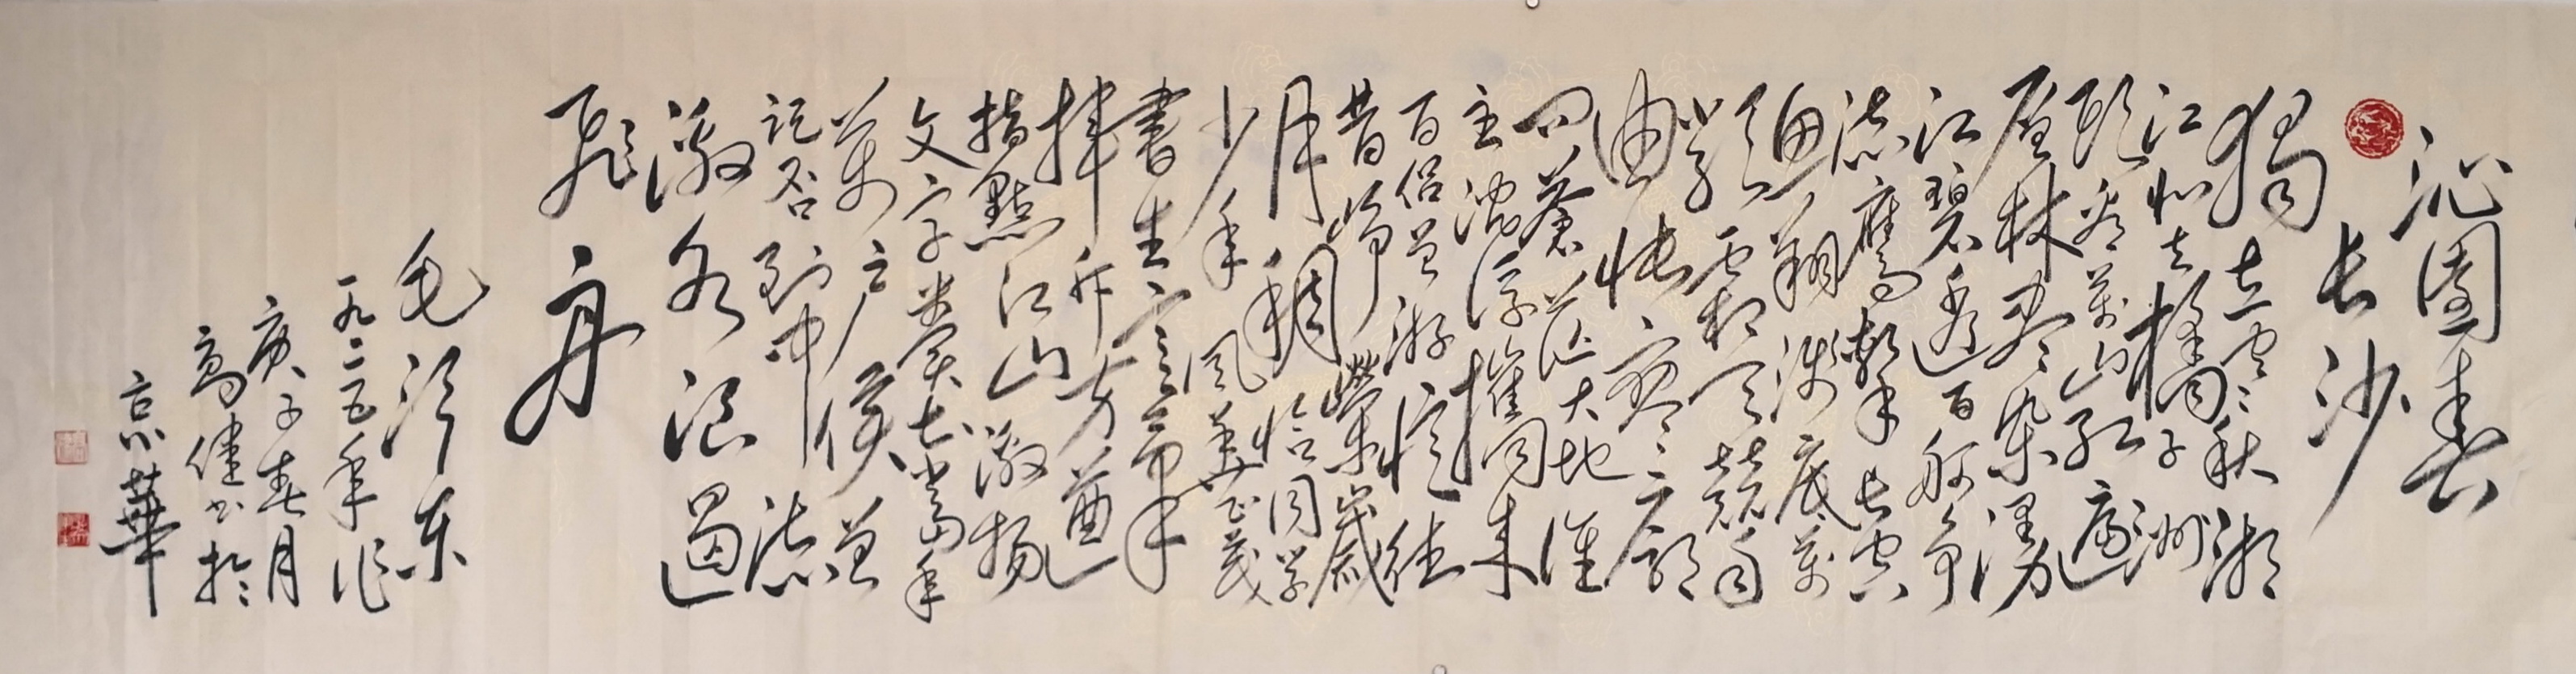 沁園春
长沙
獨立寒秋湘
江北去橘子洲
頭看萬山紅遍
层林尽染漫
江碧透百舸争
流鷹擊长空
魚翔浅底萬
類霜天競自
由怅寥廓
问蒼茫大地谁
主沉浮攜来
百侣曾游忆往
昔峥嵘歲
月稠恰同学
少年风華正茂
書生意氣
挥斥方遒
指點江山激扬
文字粪土當年
萬户侯曾
记否到中流
激水浪遏
飛舟
毛泽东
一九二五年作
庚子春月
高健书於
京華